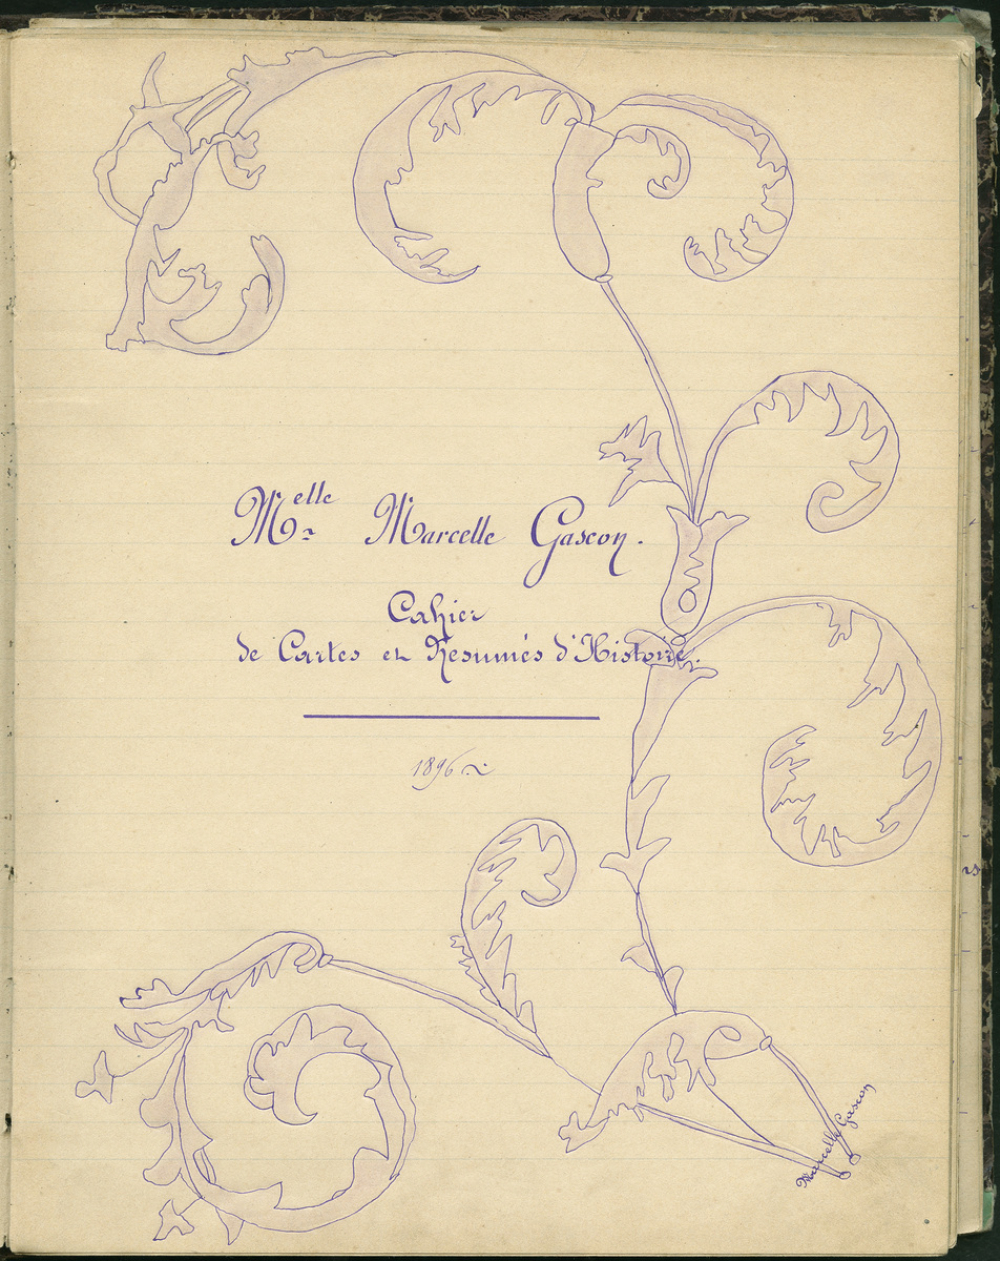 Melle Marcelle Gascon.
Cahier
de Cartes et Résumés d'Histoire.
1896
Marcelle Gascon